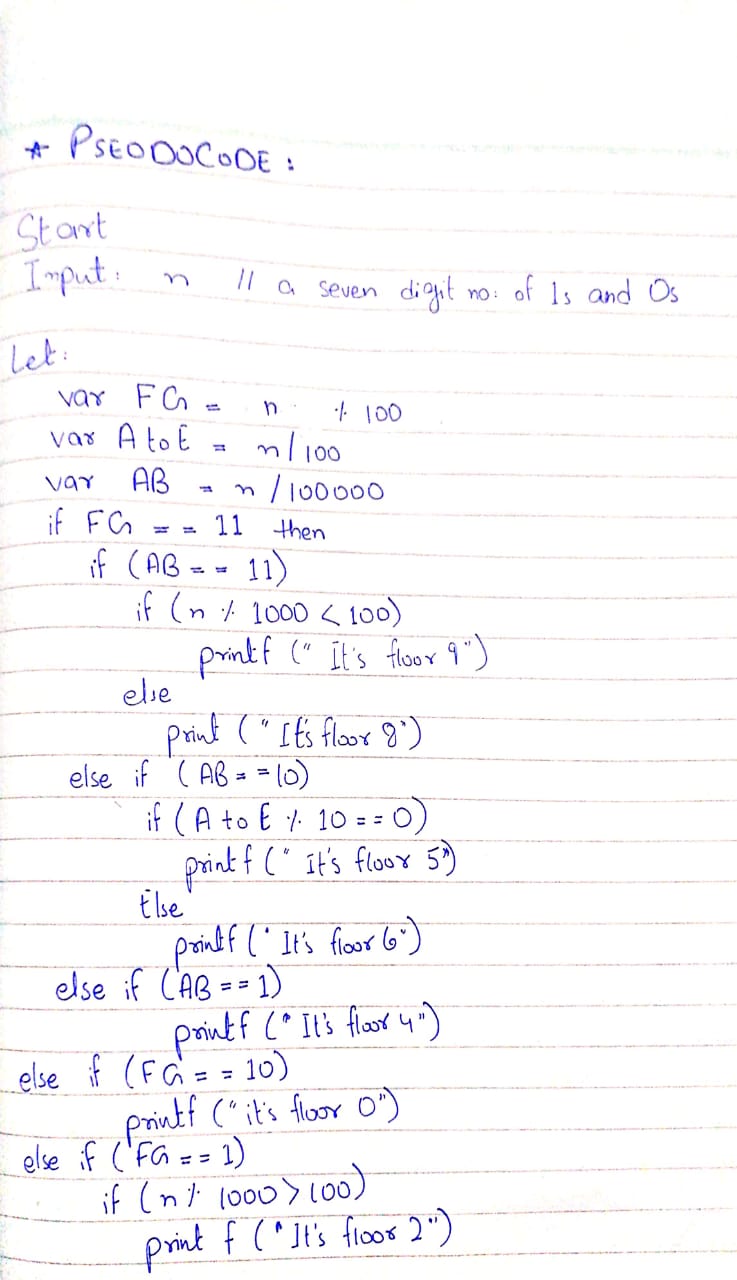 * PSEODOCODE :
Start
Input: n // a seven digit no: of 1s and 0s
Let:
var FG = n % 100
var A to E = n/100
var AB = n/100000
if FG == 11 then
if (AB == 11)
if (n % 1000 < 100)
printf (" It's floor 9")
else
print (" It's floor 8")
else if (AB == 10)
if (A to E % 10 == 0)
printf (" it's floor 5")
Else
printf (" It's floor 6")
else if (AB == 1)
printf (" It's floor 4")
else if (FG == 10)
printf (" it's floor 0")
else if (FG == 1)
if (n % 1000 > 100)
print f (" It's floor 2")